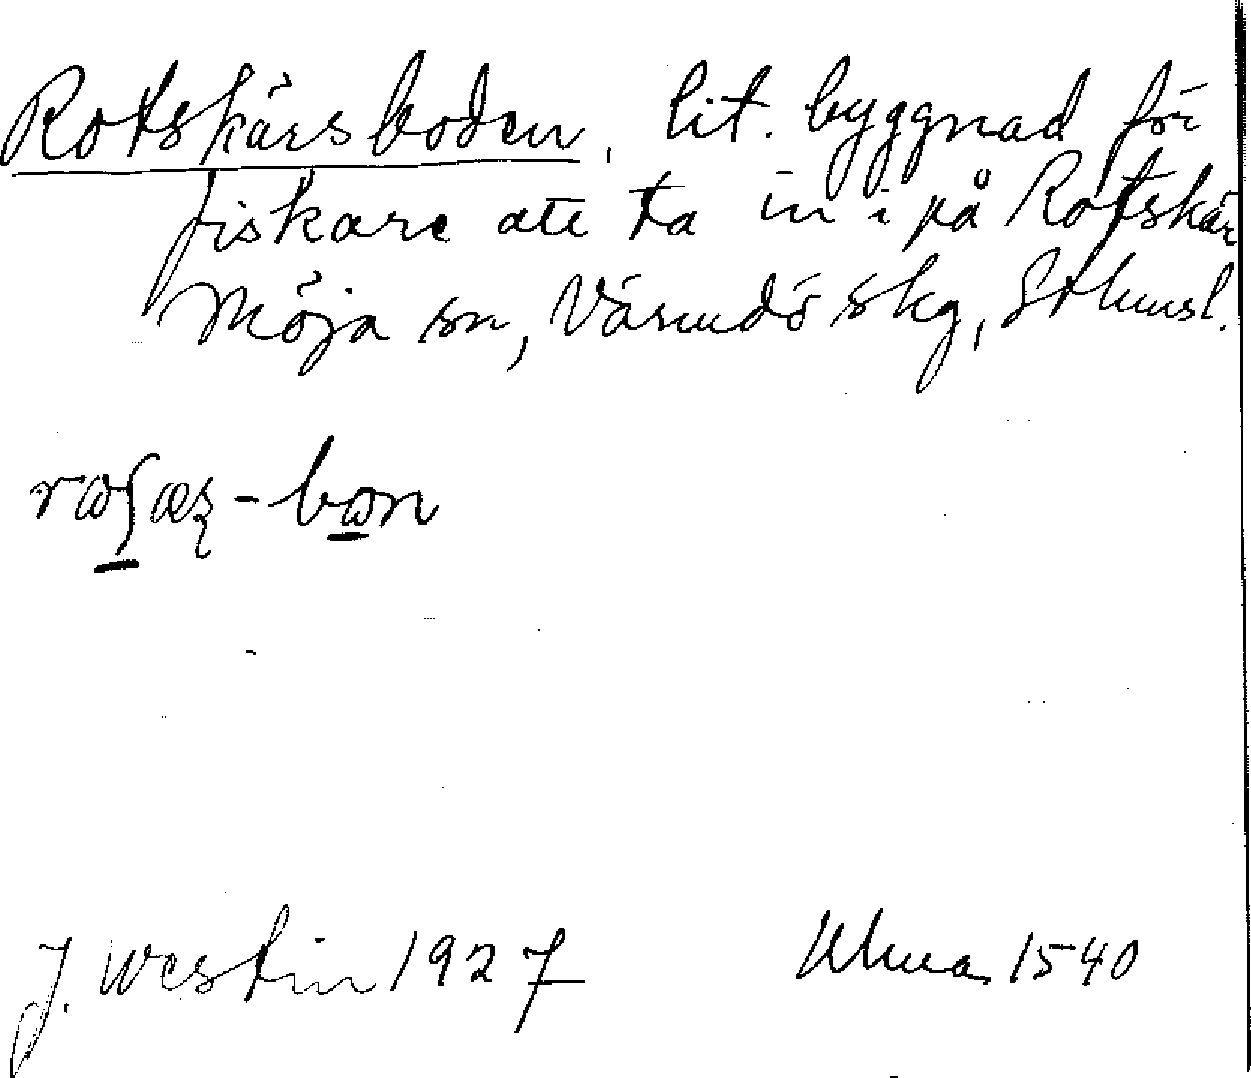 Rotskärsboden, lit. byggnad för
fiskare att ta in i på Rotskär
Möja sn, Värmdö skg, Sthmsl.
rωʃæʂ-bωn
J. Westin 1927 Uhua 1540